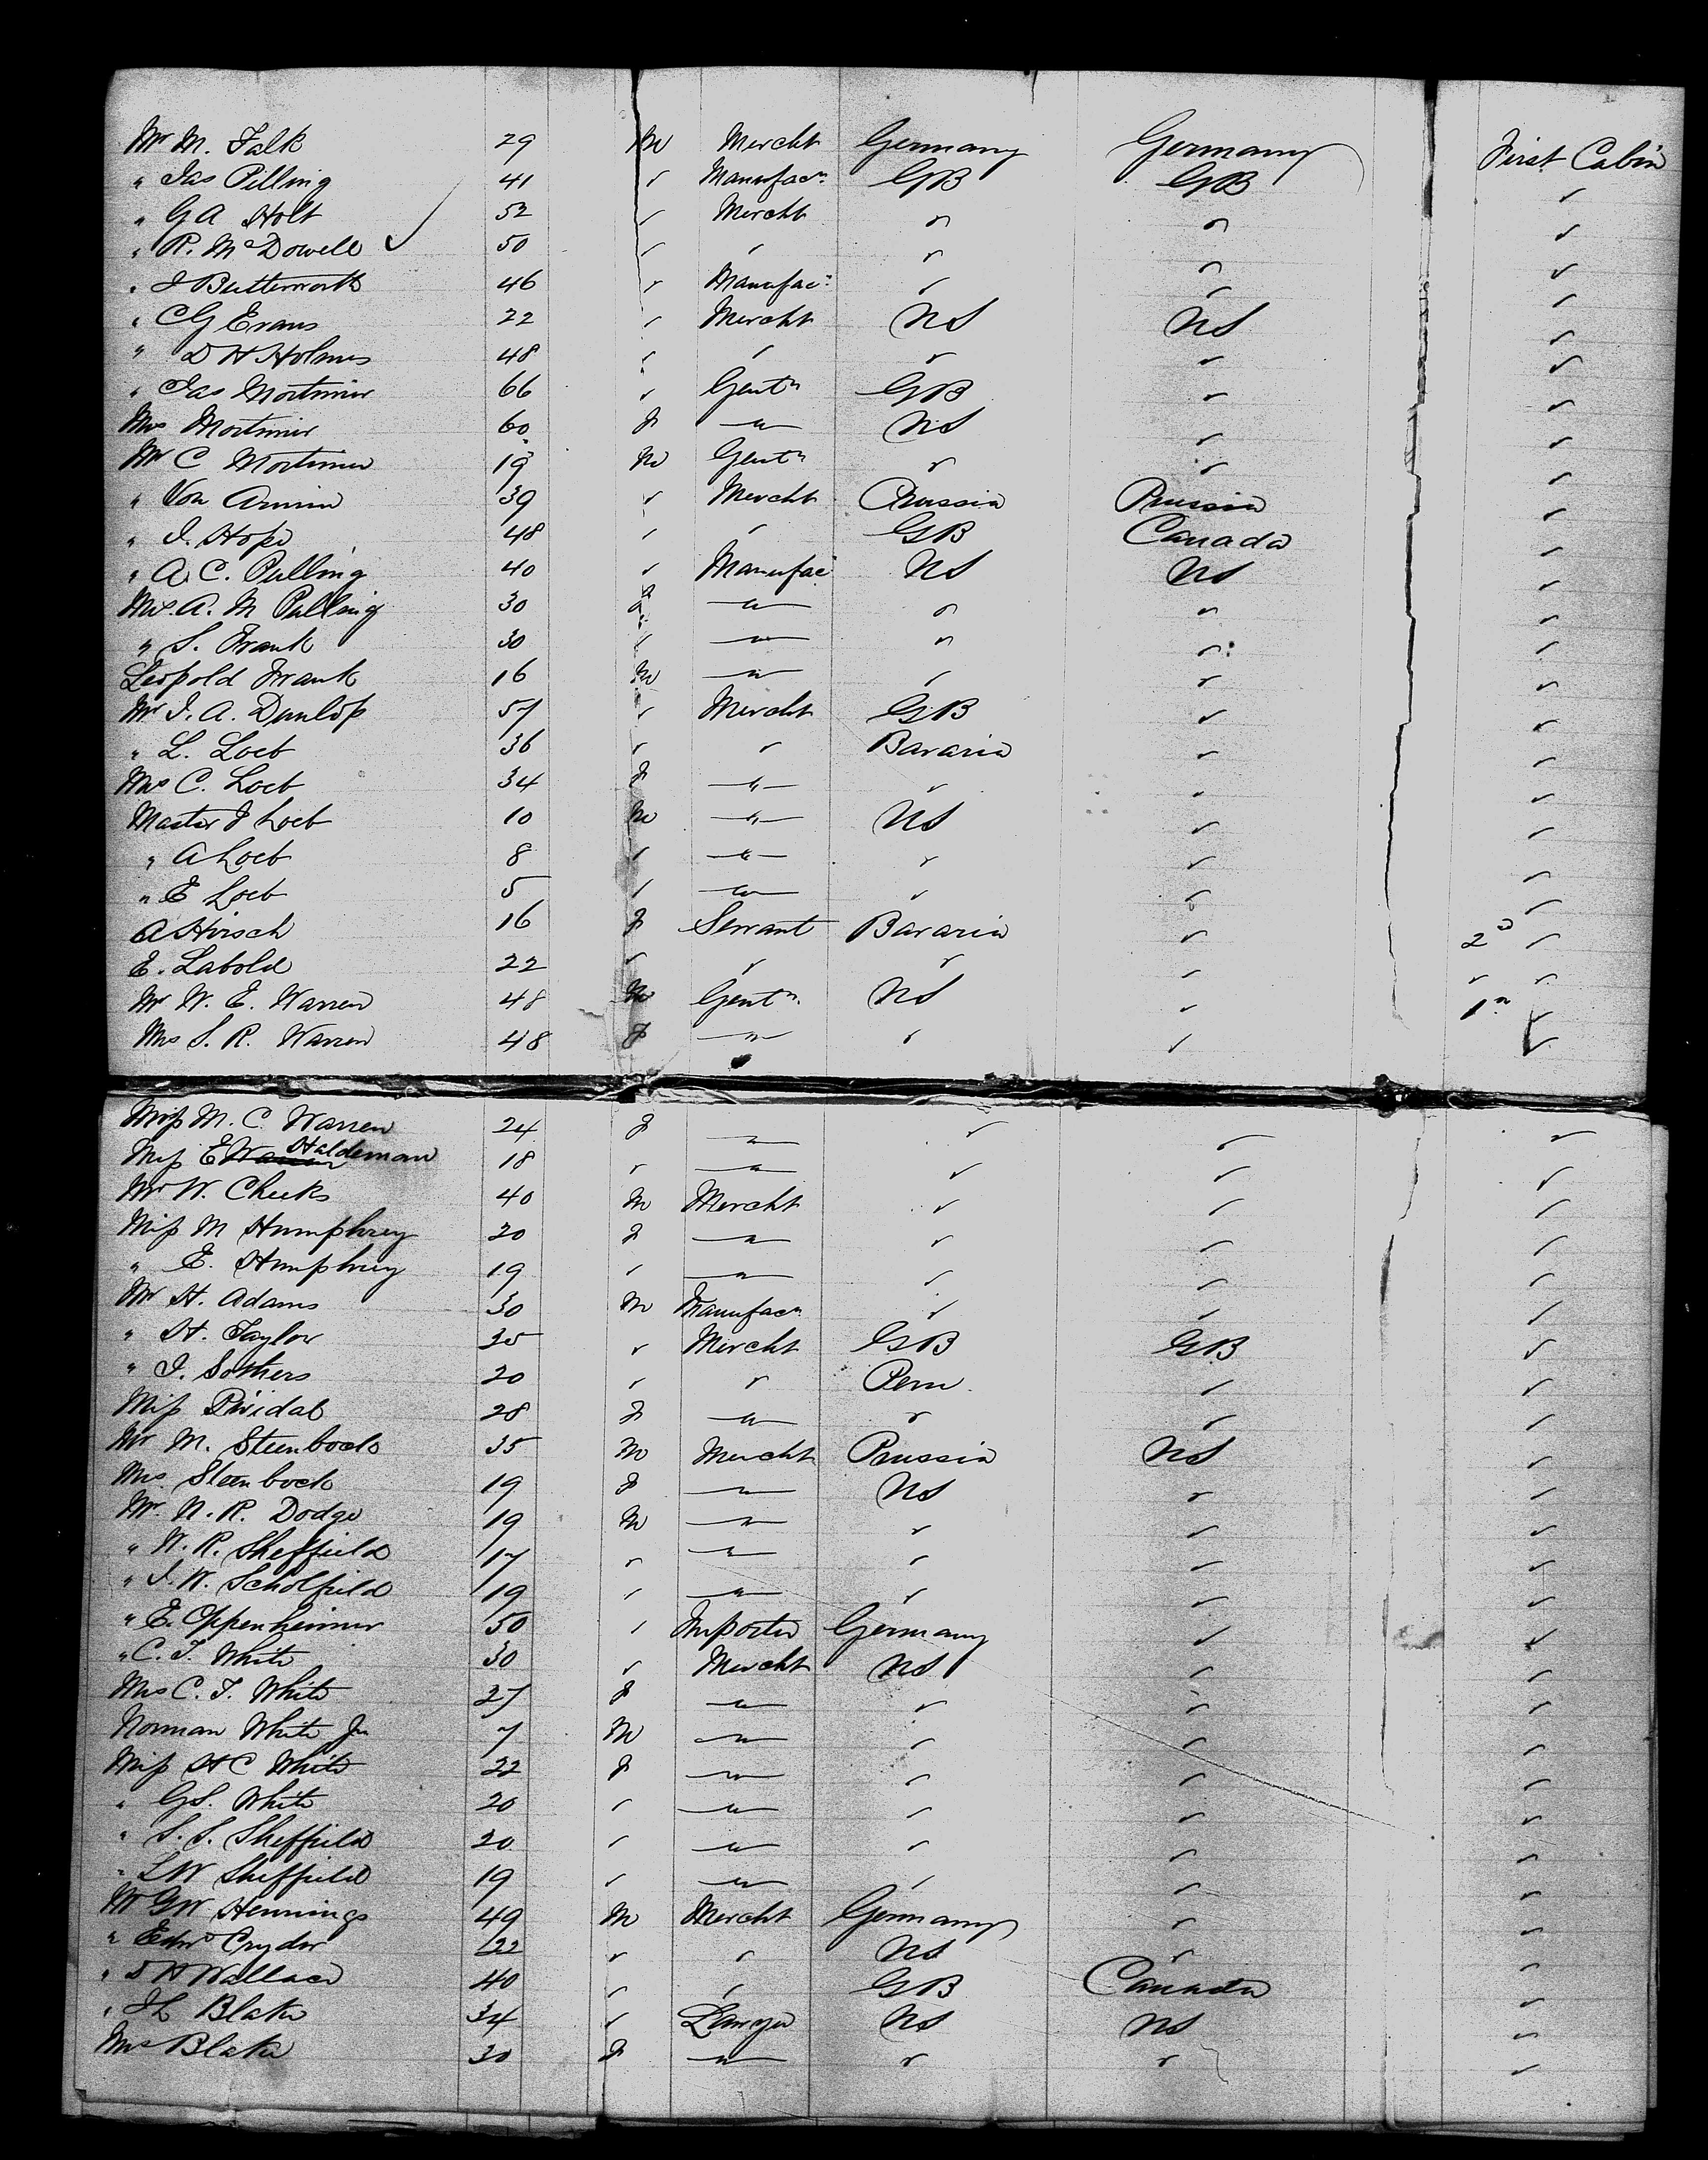 Mr M. Falk 29 M Mercht Germany Germany First Cabin
" Jas Pilling 41 " Manufacr GB GB "
" G A Holt 52 " Mercht " " "
" R. McDowell 50 " " " " "
" J Butterworth 46 " Manufacr " " "
" C G Evans 22 " Mercht US US "
" D H Holmes 48 " " " " "
" Jas Mortimer 66 " Gentn GB " "
Mrs Mortimer 60 F — " — US " "
Mr C Mortimer 19 M Gentn " " "
" Von Arnim 39 " Mercht Prussia Prussia "
" J. Hope 48 " " GB Canada "
" A. C. Pulling 40 " Manufac US US "
Mrs. A. M Pulling 30 F — " — " " "
" S. Frank 30 " — " — " " "
Leopold Frank 16 M — " — " " "
Mr J. A. Dunlop 57 " Mercht GB " "
" L. Loeb 36 " " Bavaria " "
Mrs C. Loeb 34 F — " — " " "
Master J Loeb 10 M — " — US " "
" A Loeb 8 " — " — " " "
" E Loeb 5 " — " — " " "
A Hirsch 16 F Servant Bavaria " 2d "
E. Labold 22 " " " " " "
Mr W. E. Warren 48 M Gentn. US " 1st "
Mrs S. R. Warren 48 F — " — " " "
Miss M. C. Warren 24 F — " — " " "
Miss E Warren Haldeman 18 " — " — " " "
Mr W. Cheeks 40 M Mercht " " "
Miss M Humphrey 20 F — " — " " "
" E. Humphrey 19 " — " — " " "
Mr H. Adams 30 M Manufacr " " "
" H. Taylor 35 " Mercht GB GB "
" J. Sothers 20 " " Peru " "
Miss Prividal 28 F — " — " " "
Mr M. Steenbock 35 M Mercht Prussia US "
Mrs Steenbock 19 F — " — US " "
Mr. N. R. Dodge 19 M — " — " " "
" W. R. Sheffield 17 " — " — " " "
" J. W. Scholfield 19 " — " — " " "
" E. Oppenheimer 50 " Importer Germany " "
" C. T. White 30 " Mercht US " "
Mrs C. T. White 27 F — " — " " "
Norman White Jr 7 M — " — " " "
Miss H C White 22 F — " — " " "
" G S. White 20 " — " — " " "
" S. S. Sheffield 20 " — " — " " "
" L W Sheffield 19 " — " — " " "
Mr G W Hennings 49 M Mercht Germany " "
" Edwd Cryder 22 " " US " "
" D H Wallace 40 " " GB Canada "
" J L Blake 34 " Lawyer US US "
Mrs Blake 30 F — " — " " "